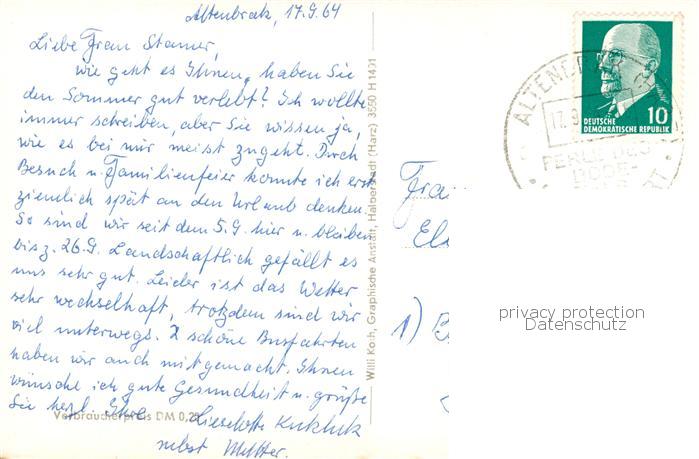 Altenbrak, 17.9.64
Liebe Frau Stamer,
wie geht es Ihnen, haben Sie
den Sommer gut verlebt? Ich wollte
immer schreiben, aber Sie wissen ja,
wie es bei mir meist zugeht. Durch
Besuch u. Familienfeier konnte ich erst
ziemlich spät an den Urlaub denken.
So sind wir seit dem 5.9. hier u. bleiben
bis z. 26.9. Landschaftlich gefällt es
uns sehr gut. Leider ist das Wetter
sehr wechselhaft, trotzdem sind wir
viel unterwegs. 2 schöne Busfahrten
haben wir auch mitgemacht. Ihnen
wünsche ich gute Gesundheit u. grüße
Sie herzl. Ihre Lieselotte
nebst Mutter.
Verbraucherpreis DM 0,20
Willi Koch, Graphische Anstalt, Halberstadt (Harz) 3550 H 1431
10
DEUTSCHE
DEMOKRATISCHE REPUBLIK
17.9
BODE-
Fra
1)
privacy protection
Datenschutz